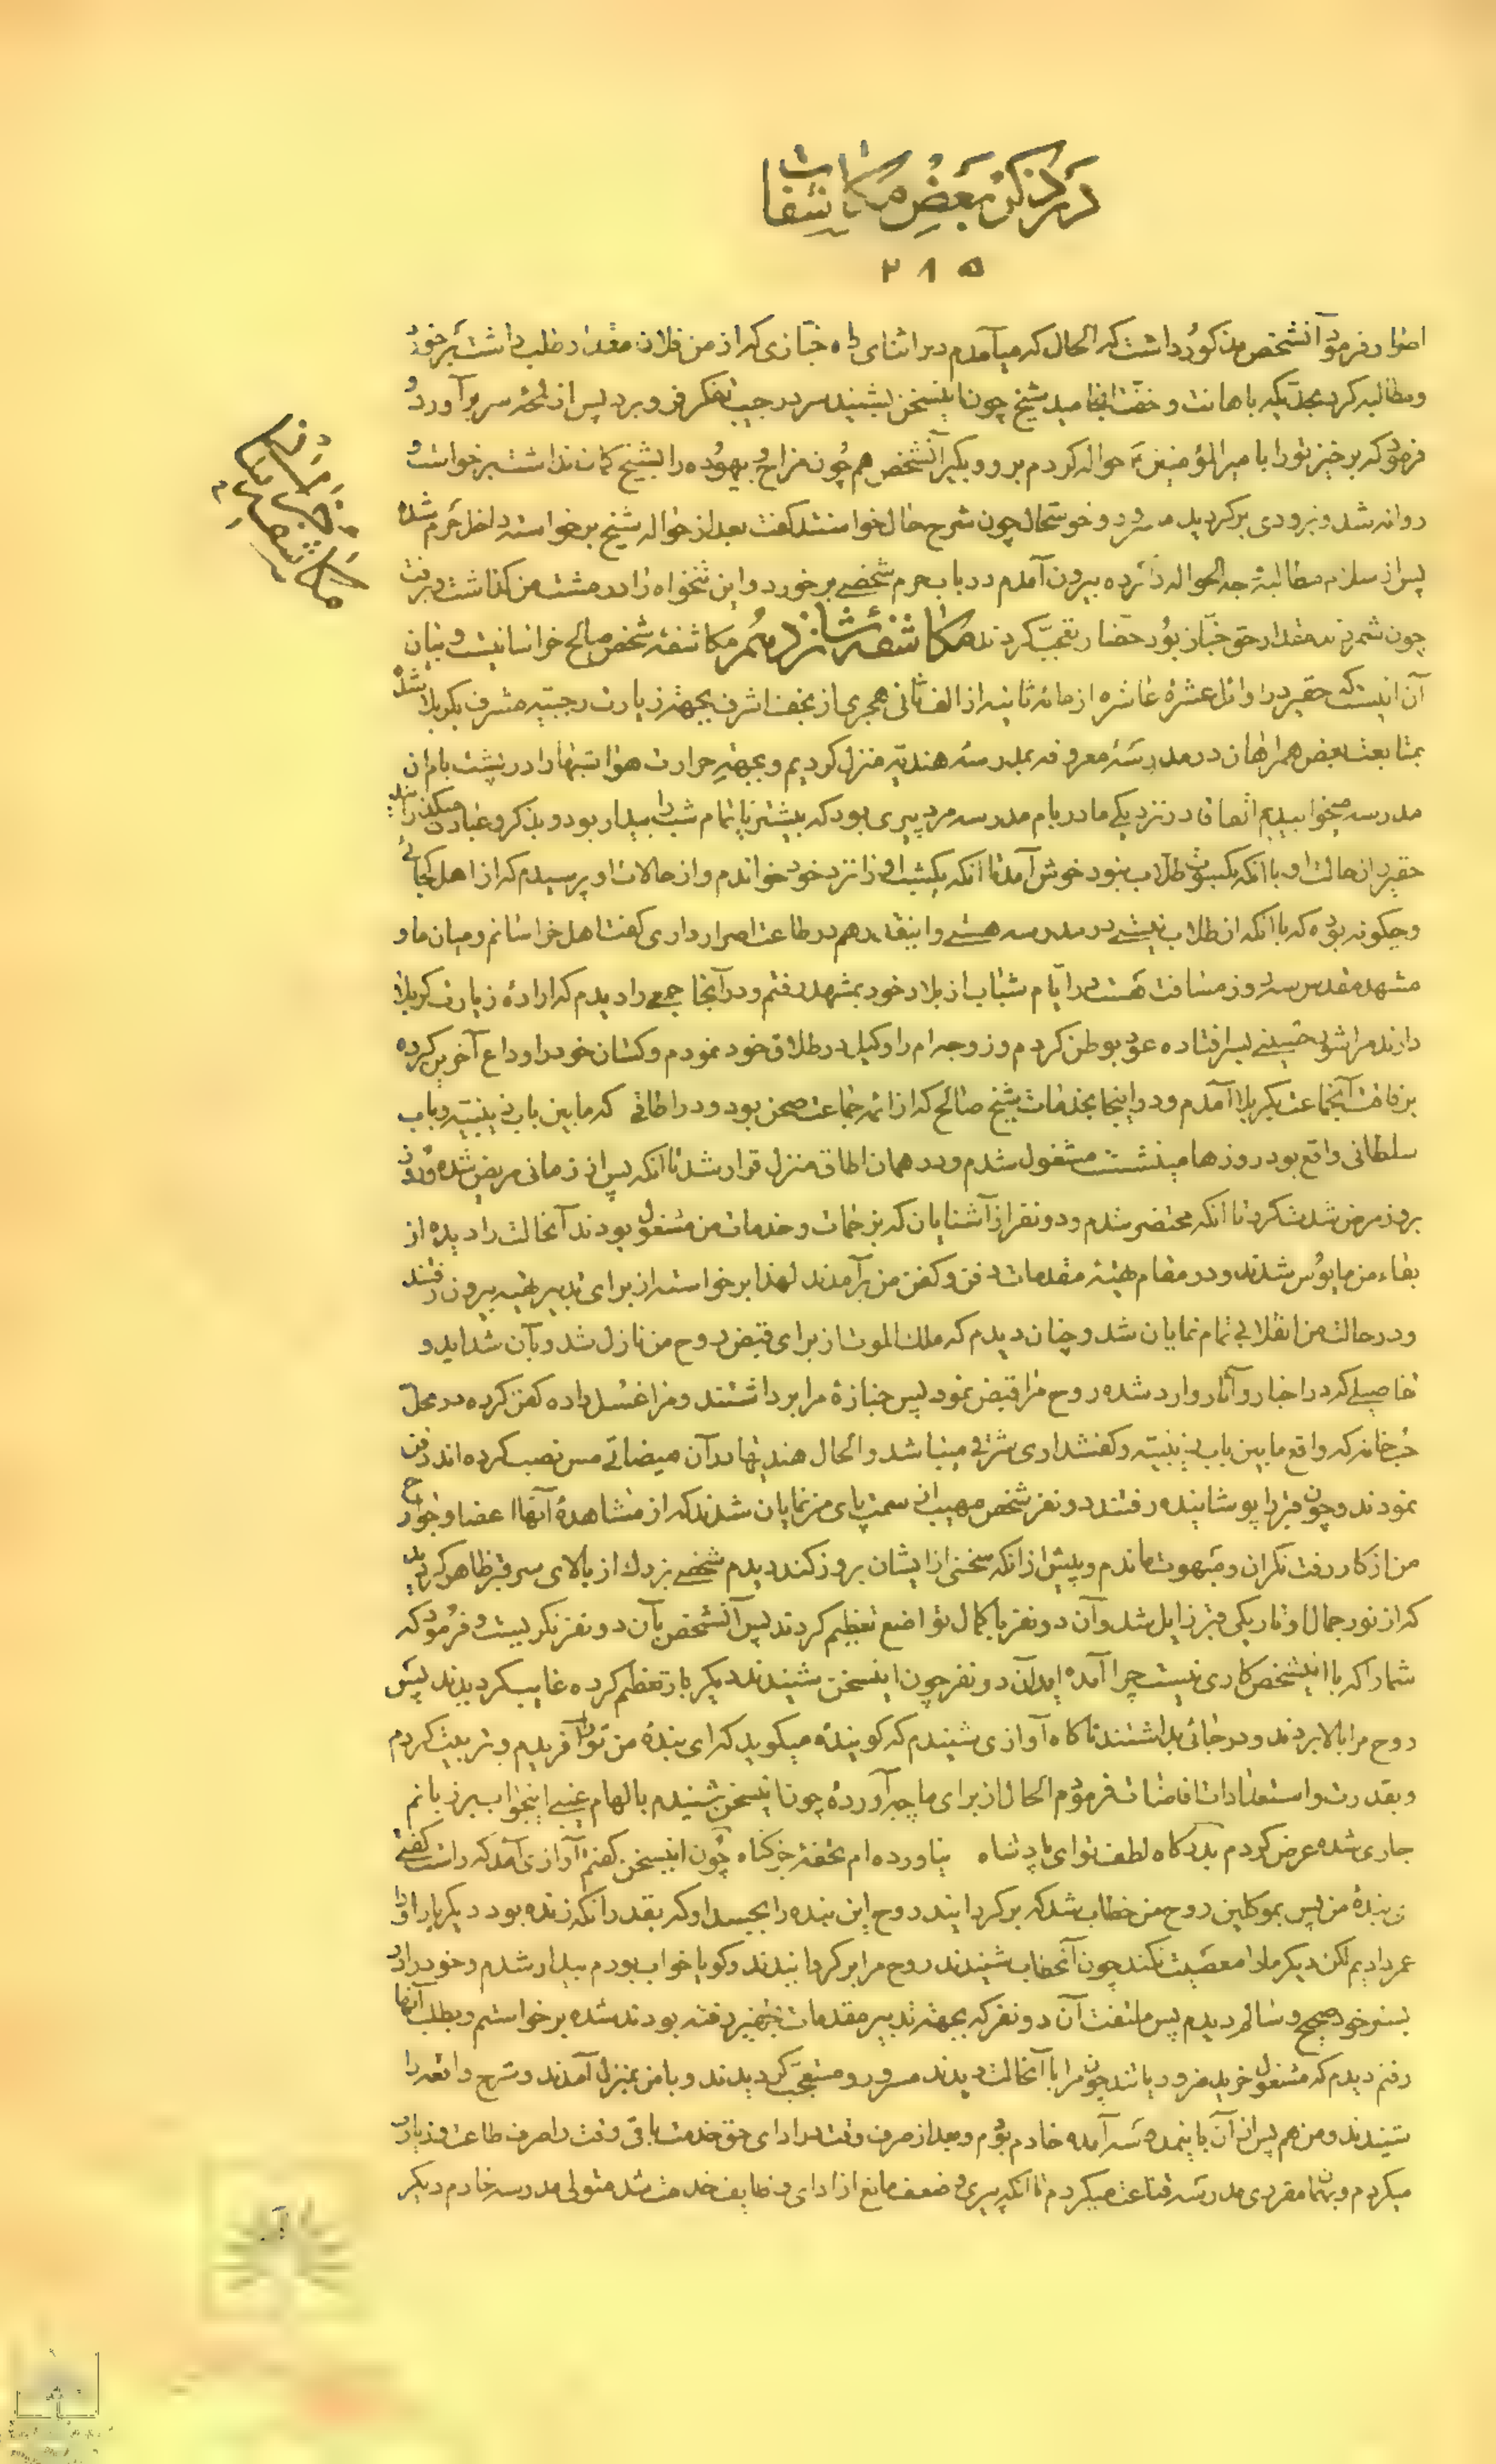 در ذکر بعض مکاشفات
۲۱۵
اصرار فرمود آنشخص مذکور داشت که الحال که میآمدم در اثنای راه خبّازی که از من فلان مقدار طلب داشت بر خورد
و مطالبه کرد بحدّیکه باهانت و خفّت انجامید شیخ چون اینسخن بشنید سر در جیب تفکر فرو برد پس از لمحهٔ سر بر آورد و
فرمود که برخیز تو را بامیر المؤمنین حواله کردم برو و بگیر آنشخص هم چون مزاح و بیهوده را بشیخ گمان نداشت برخواست و
روانه شد و بزودی برگردید مسرور و خوشحال چون شرح حال خواستند گفت بعد از حواله شیخ برخواسته داخل حرم شده
پس از سلام مطالبهٔ وجه الحواله کرده بیرون آمدم در باب حرم شخصی برخورد و این تنخواه را در مشت من گذاشت و برفت
چون شمردند مقدار حق خبّاز بود حضّار تعجّب کردند مکاشفهٔ شانزدهم مکاشفه شخص صالح خراسانیست و بیان
آن اینست که حقیر در اوائل عشرهٔ عاشره از مائه ثانیه از الف ثانی هجری از نجف اشرف بجهت زیارت رجبیّه مشرف بکربلا شده
بمتابعت بعض همراهان در مدرسهٔ معروفه بمدرسه هندیّه منزل کردیم و بجهتِ حرارت هوا شبها را در پشت بام آن
مدرسه میخوابیدیم اتفاقا در نزدیکی ما در بام مدرسه مرد پیری بود که بیشتر یا تمام شب را بیدار بود و بذکر و عبادت میگذرانید
حقیر از حالت او با آنکه بکسوت طلّاب نبود خوش آمد تا آنکه یکشب او را نزد خود خواندم و از حالات او پرسیدم که از اهل کجائی
و چگونه بوده که با آنکه از طلاب نیستی در مدرسه هستی و اینقدر هم در طاعت اصرار داری گفت اهل خراسانم و میان ما و
مشهد مقدس سه روز مسافت هست در ایّام شباب از بلاد خود بمشهد رفتم و در آنجا جمعی را دیدم که ارادهٔ زیارت کربلا
دارند مرا شور حسینی بسر افتاده عود بوطن کردم و زوجه ام را وکیل در طلاق خود نمودم و کسان خود را وداع آخرین کرده
برفاقت آنجماعت بکربلا آمدم و در اینجا بخدمات شیخ صالح که از ائمه جماعت صحن بود و در اطاقی که مابین باب زینبیّه و باب
سلطانی واقع بود روزها مینشست مشغول شدم و در همان اطاق منزل قرار شد تا آنکه پس از زمانی مریض شده و روز
بروز مرض شدت کرد تا آنکه محتضر شدم و دو نفر از آشنایان که بزحمات و خدمات من مشغول بودند آنحالت را دیده از
بقاء من مایوس شدند و در مقام تهیّهٔ مقدمات دفن و کفن من برآمدند لهذا برخواسته از برای تدبیر تهیه بیرون رفتند
و در حالت من انقلابی تمام نمایان شد و چنان دیدم که ملک الموت از برای قبض روح من نازل شد و بآن شداید و
تفاصیلی که در اخبار و آثار وارد شده روح مرا قبض نمود پس جنازهٔ مرا برداشتند و مرا غسل داده کفن کرده در محلّ
حُبّ خانه که واقع مابین باب زینبیّه و کفشداری شرقی میباشد و الحال هندیها در آن میضاتی مس نصب کرده اند دفن
نمودند و چون قبر را پوشانیده رفتند دو نفر شخص مهیب از سمت پای من نمایان شدند که از مشاهدهٔ آنها اعضا و جوارح
من از کار رفت نگران و مبهوت ماندم و پیش از آنکه سخنی از ایشان بروز کند دیدم شخصی بزرگ از بالای سر قبر ظاهر گردید
که از نور جمال او تاریکی قبر زایل شد و آن دو نفر با کمال تواضع تعظیم کردند پس آنشخص بآن دو نفر نگریست و فرمود که
شما را که با اینشخص کاری نیست چرا آمده اید آن دو نفر چون اینسخن شنیدند دیگر بار تعظیم کرده غایب گردیدند پس
روح مرا بالا بردند و در جائی بداشتند ناگاه آوازی شنیدم که گویندهٔ میگوید که ای بندهٔ من تو را آفریدم و تربیت کردم
و بقدرت و استعدادات افاضات فرمودم الحال از برای ما چه آوردهٔ چون اینسخن شنیدم بالهام غیبی اینجواب بر زبانم
جاری شده عرض کردم بدرگاه لطف تو ای پادشاه نیاورده ام تحفه جز گناه چون اینسخن گفتم آوازی آمد که راست گفتی
ای بندهٔ من پس بموکلین روح من خطاب شد که برگردانید روح این بنده را بجسد او که بقدر آنکه زنده بود دیگر بار او را
عمر دادیم لکن دیگر ما را معصیت نکند چون آنخطاب شنیدند روح مرا برگردانیدند و گویا خواب بودم بیدار شدم و خود را در
بستر خود صحیح و سالم دیدم پس ملتفت آن دو نفر که بجهت تدبیر مقدمات تجهیز رفته بودند شده برخواستم و بطلب آنها
رفتم دیدم که مشغول خرید ضروریاتند چون مرا با آنحالت دیدند مسرور و متعجّب گردیدند و با من بمنزل آمدند و شرح واقعه را
شنیدند و من هم پس از آن باینمدرسه آمده خادم بودم و بعد از صرف وقت در ادای حق خدمت باقی وقت را صرف طاعت و زیارت
میکردم و بهمان مقرری مدرسه قناعت میکردم تا آنکه پیری و ضعف مانع از ادای وظایف خدمت شد متولی مدرسه خادم دیگر